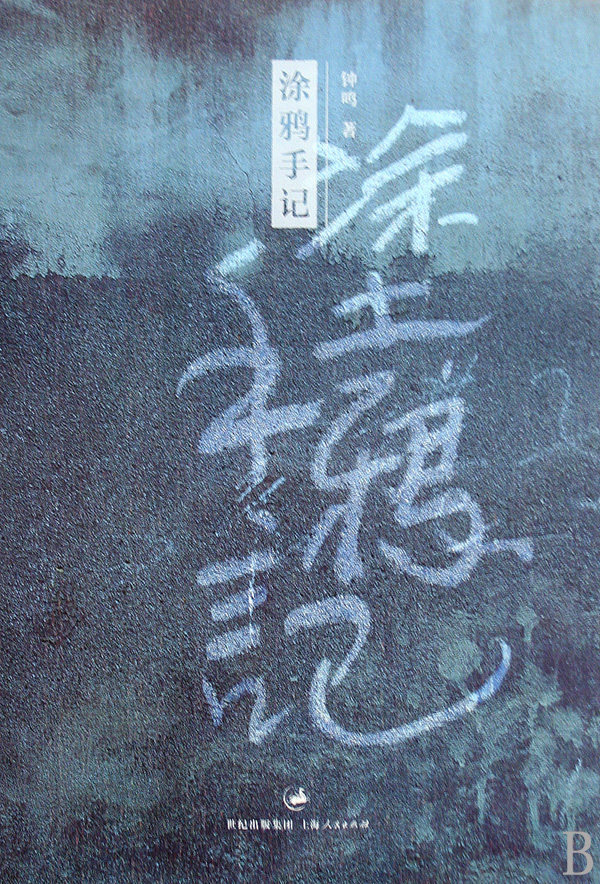 涂鸦手记
钟鸣 著
塗鴉
手記
世纪出版集团 上海人民出版社
B